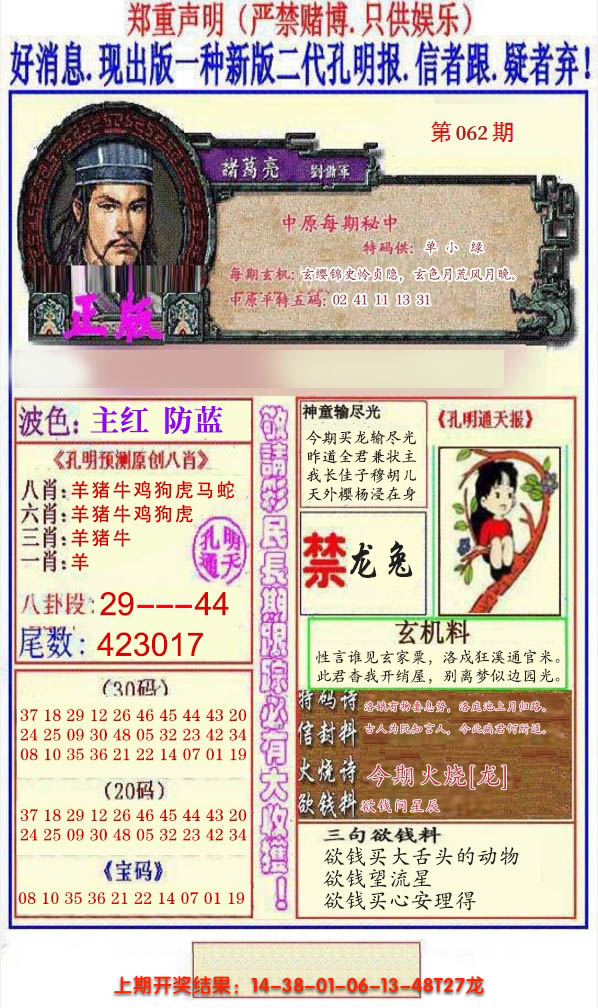 郑重声明（严禁赌博.只供娱乐）
好消息.现出版一种新版二代孔明报.信者跟.疑者弃！
第062期
諸葛亮 劉備軍
中原每期秘中
特码供：单 小 绿
每期玄机：玄缨锦史怜贞隐，玄色月荒风月晚。
中原平特五码：02 41 11 13 31
正版
波色：主红 防蓝
《孔明预测原创八肖》
八肖：羊猪牛鸡狗虎马蛇
六肖：羊猪牛鸡狗虎
三肖：羊猪牛
一肖：羊
孔明
通天
八卦段：29---44
尾数：423017
（30码）
37 18 29 12 26 46 45 44 43 20
24 25 09 30 48 05 32 23 42 34
08 10 35 36 21 22 14 07 01 19
（20码）
37 18 29 12 26 46 45 44 43 20
24 25 09 30 48 05 32 23 42 34
《宝码》
08 10 35 36 21 22 14 07 01 19
敬請彩民長期跟踪必有大收獲！
神童输尽光
今期买龙输尽光
昨道全君兼状主
我长佳子穆胡儿
天外樱杨浸在身
《孔明通天报》
禁 龙 兔
玄机料
性言谁见玄家粟，洛戍狂溪通官米。
此君沓我开绡屋，别离梦似边园光。
特码诗
信封料
洛娥有物委息势，洛庭池上月归路。
古人为阮加言人，今此病君何所适。
火烧诗 今期火烧[龙]
欲钱料 欲钱问星辰
三句欲钱料
欲钱买大舌头的动物
欲钱望流星
欲钱买心安理得
上期开奖结果：14-38-01-06-13-48T27龙